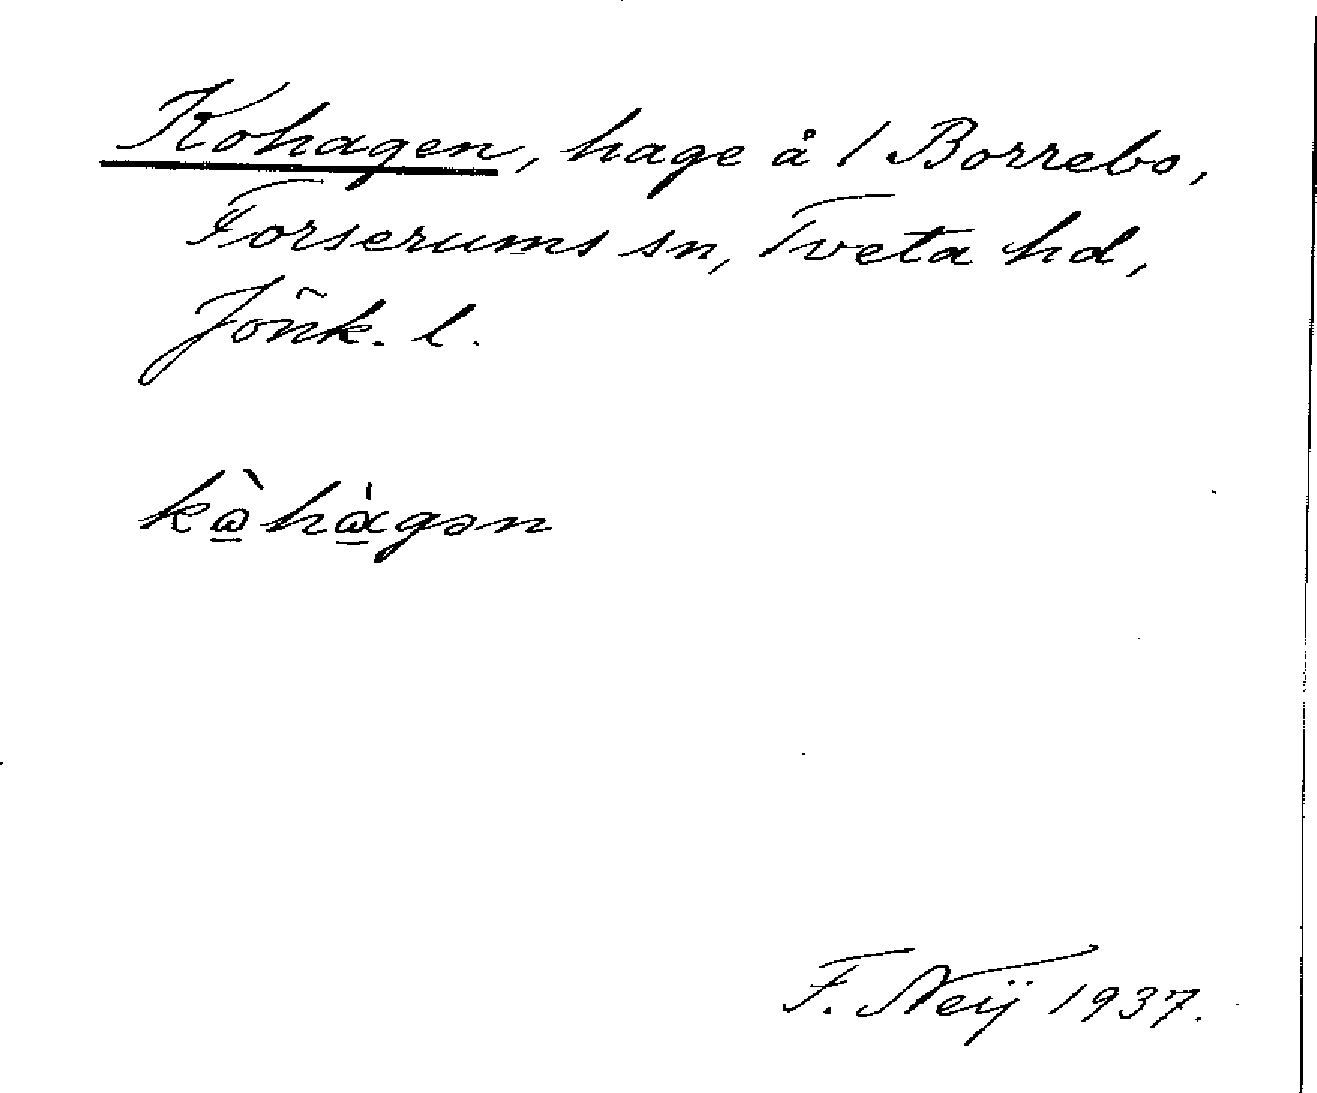 Kohagen, hage å 1 Borrebo,
Forserums sn, Tveta hd,
Jönk. l.
kὼhὰgən
F. Neij 1937.